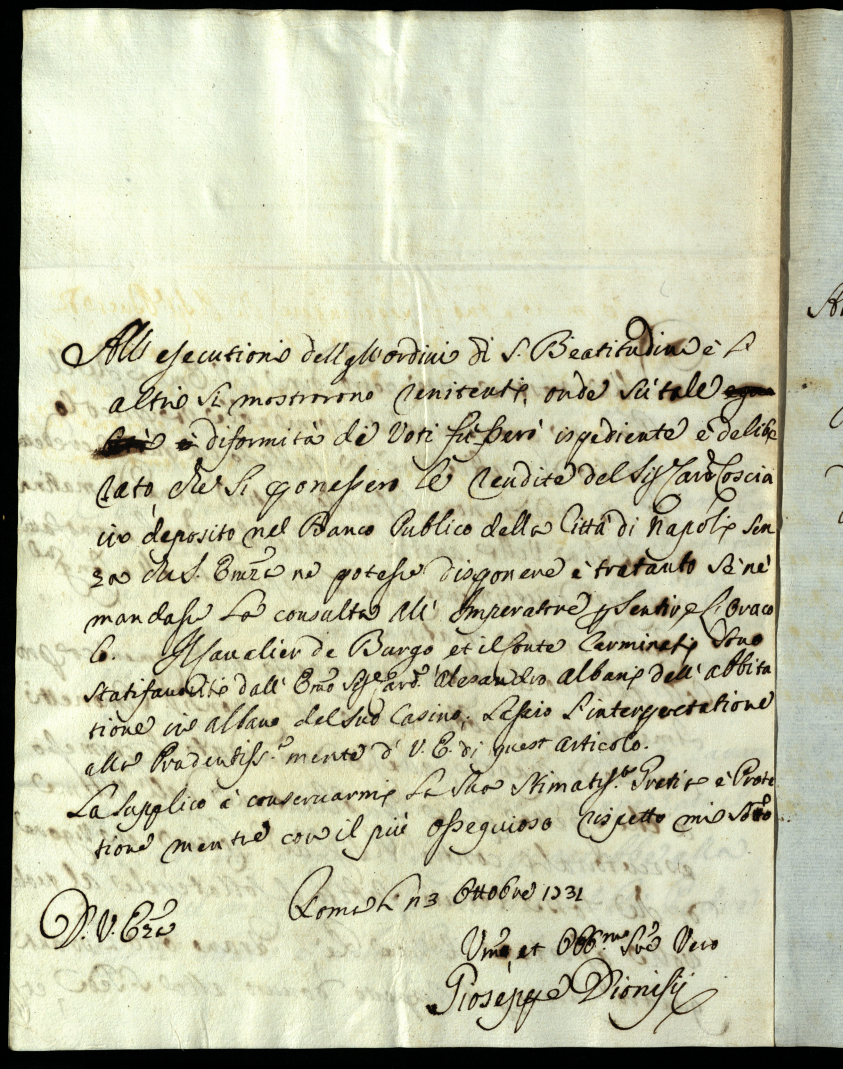 All' esecutione dell' gl'ordini di S. Beatitudine e l'
altri si mostrorono renitenti, onde su tale
diformità de Voti fu stero ispediente e delibe
rato che si ponessero le rendite del Sig.r Card. Coscia
in deposito nel Banco Publico della Città di Napoli sen
za che S. Emza ne potesse disponere e tratanto se ne
mandasse la consulta all' Imperatore p sentire l'Oraco
lo. Il Cavalier de Burgo et il Conte Carminati sono
stati favoriti dall' Emo Sig.r Card. Alesandro Albani dell' abbita
tione in Albano del suo Casino; Lascio l'interpretatione
alla Prudentiss.a mente di V. E. di quest articolo.
La supplico a conservarmi la sua Stimatiss.a Gratia e Prote
tione mentre con il più ossequioso rispetto mi
Roma li 13 Ottobre 1731
D. V. Emza
Umo et Obb.mo Sre Vero
Gioseppe Dionisij